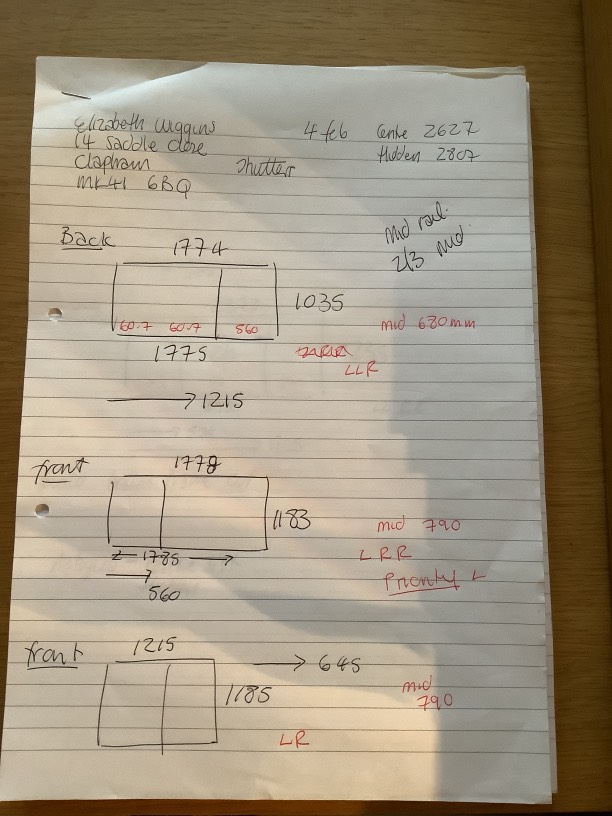 Elizabeth Wiggins
14 Saddle close
Clapham
MK41 6BQ
Shutters
4 feb
Centre 2627
Hidden 2807
Mid rail.
2/3 mid.
Back
1774
1035
607 607 560
1775
mid 680mm
LLR
1215
front
1778
1183
1785
560
mid 790
LRR
Priority L
front
1215
645
1185
mid
790
LR